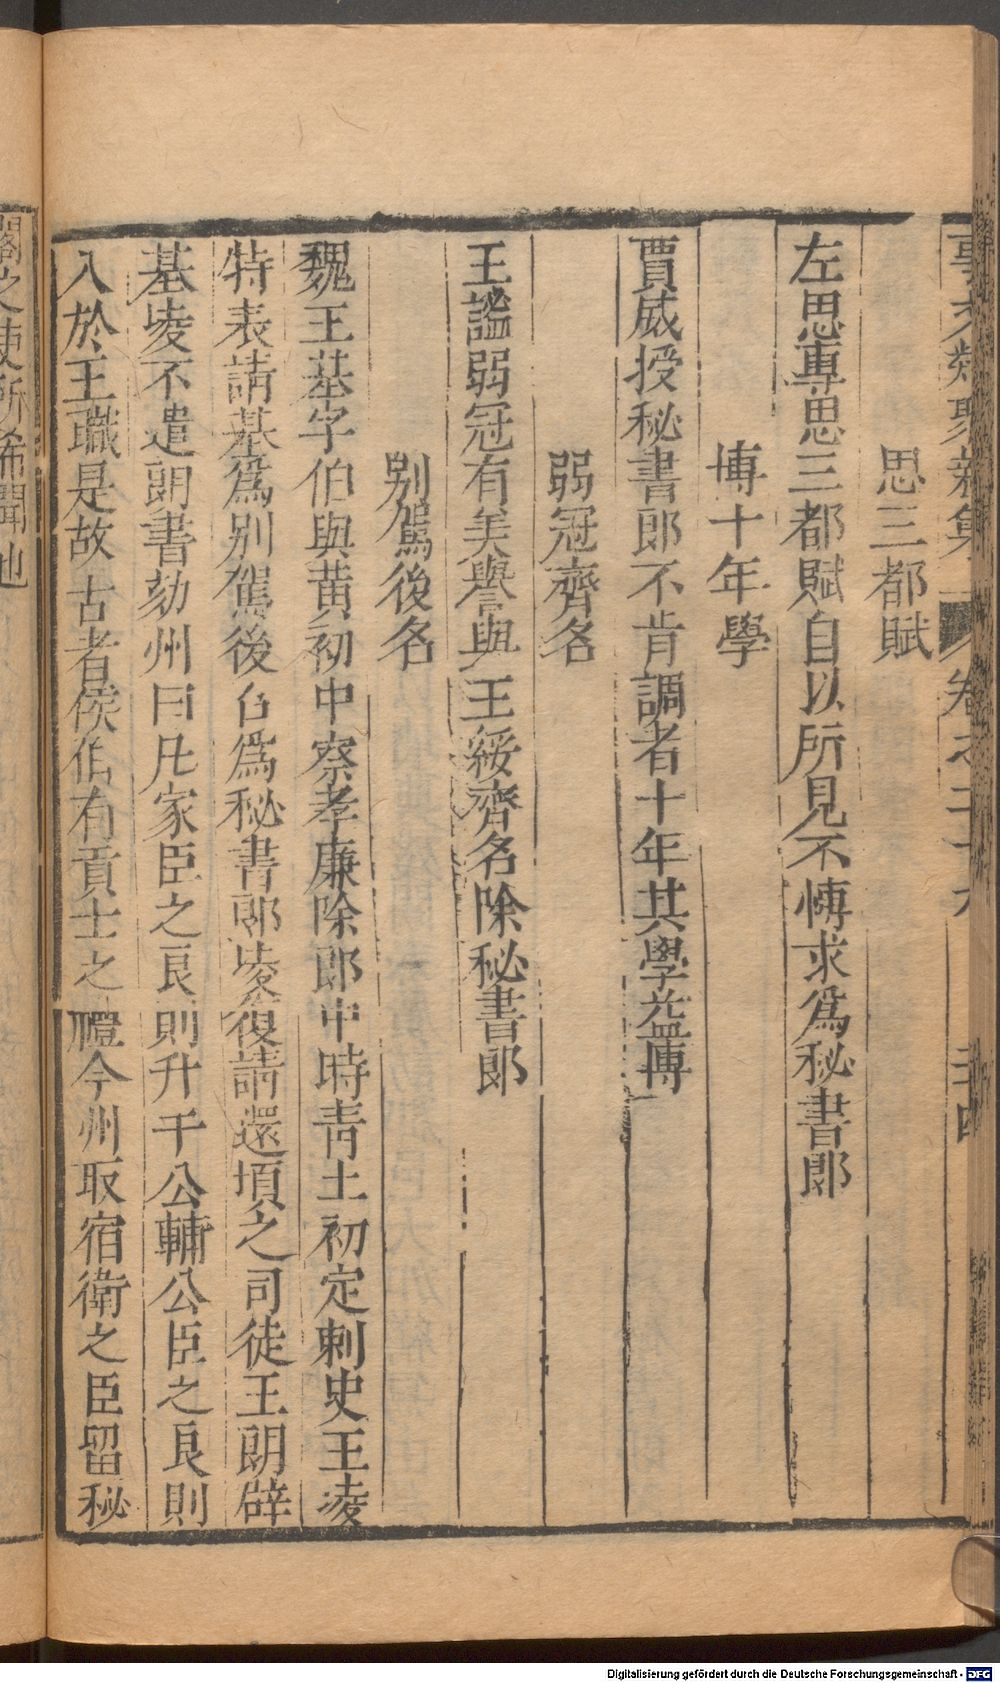 思三都賦
左思專思三都賦自以所見不慱求爲秘書郎
博十年學
賈威授秘書郎不肯調者十年其學益博
弱冠齊名
王謐弱冠有美譽與王綏齊名除秘書郎
別駕後名
魏王基字伯輿黄初中察孝廉除郎中時靑土初定刺史王凌
特表請基爲别駕後召爲秘書郎凌復請還頃之司徒王朗辟
基凌不遣朗書劾州曰凡家臣之良則升于公輔公臣之良則
入於王職是故古者侯伯有貢士之禮今州取宿衛之臣留秘
閣之吏所希聞也
Digitalisierung gefördert durch die Deutsche Forschungsgemeinschaft - DFG